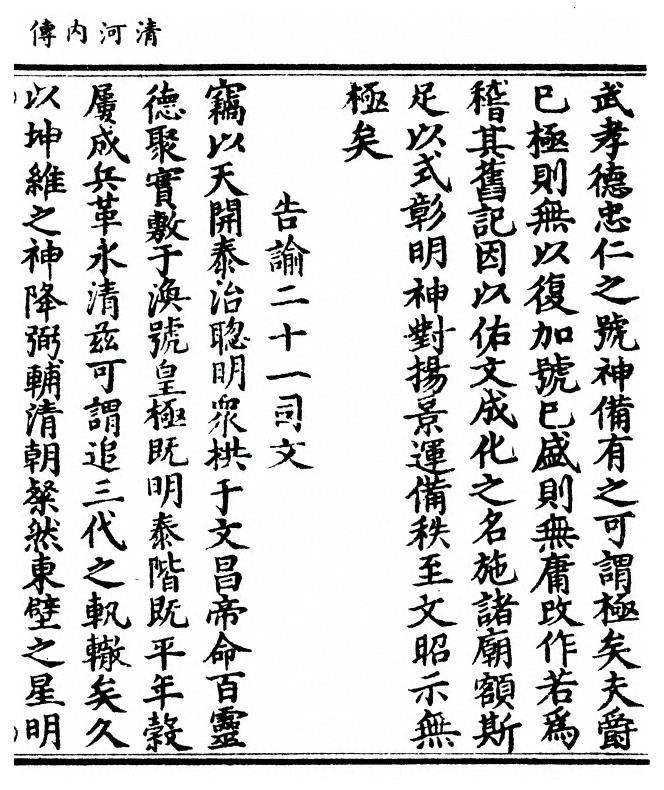 清河內傳
武孝德忠仁之號神備有之可謂極矣夫爵
已極則無以復加號已盛則無庸改作若爲
稽其舊記因以佑文成化之名施諸廟額斯
足以式彰明神對揚景運備秩至文昭示無
極矣
告諭二十一司文
竊以天開泰治聰明衆拱于文昌帝命百靈
德聚實敷于渙號皇極既明泰階既平年穀
屢成兵革永清兹可謂追三代之軌轍矣久
以坤維之神降弼輔清朝粲然東壁之星明